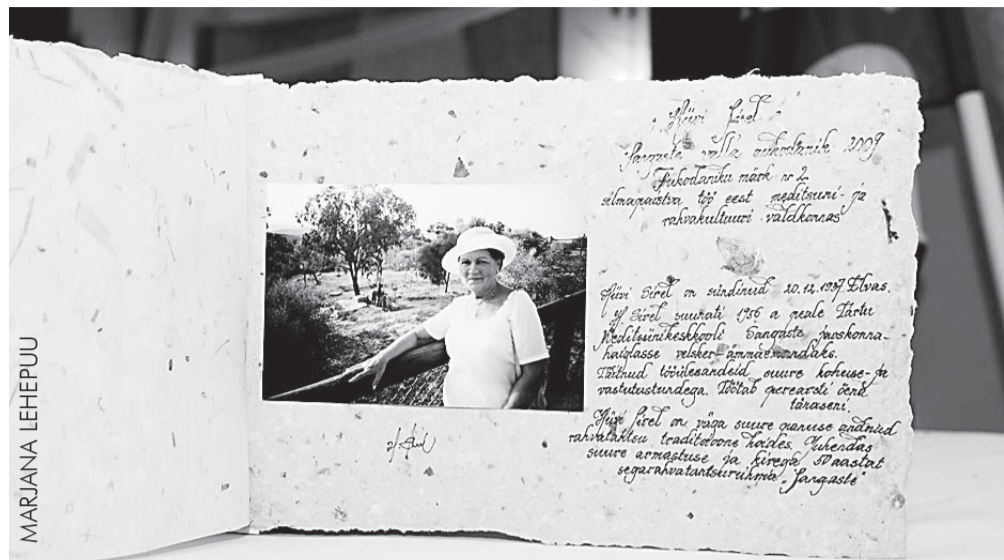 Hüvi Sirel
Sangaste valla aukodanik 2009
Aukodaniku märk nr 2
silmapaistva töö eest meditsiini- ja
rahvakultuuri valdkonnas
Hüvi Sirel on sündinud 20.12.1937 Elvas.
H Sirel suunati 1956 a peale Tartu
Meditsiinikeskkooli Sangaste jaoskonna-
haiglasse velsker-ämmaemandaks.
Täitnud tööülesandeid suure kohuse- ja
vastutustundega. Töötab perearsti õena
tänaseni.
Hüvi Sirel on väga suure panuse andnud
rahvatantsu traditsioone hoides. Juhendas
suure armastuse ja kirega 50 aastat
segarahvatantsurühma "Sangaste"
MARJANA LEHEPUU